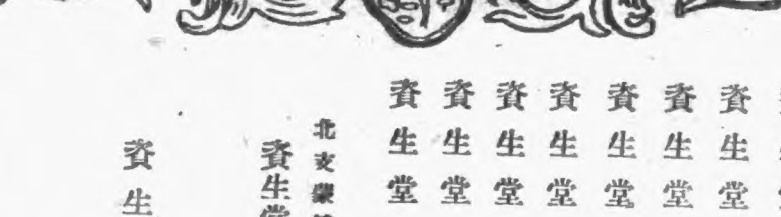 資生堂
資生堂
資生堂
資生堂
資生堂
資生堂
資生堂
北支蒙
資生堂
資生